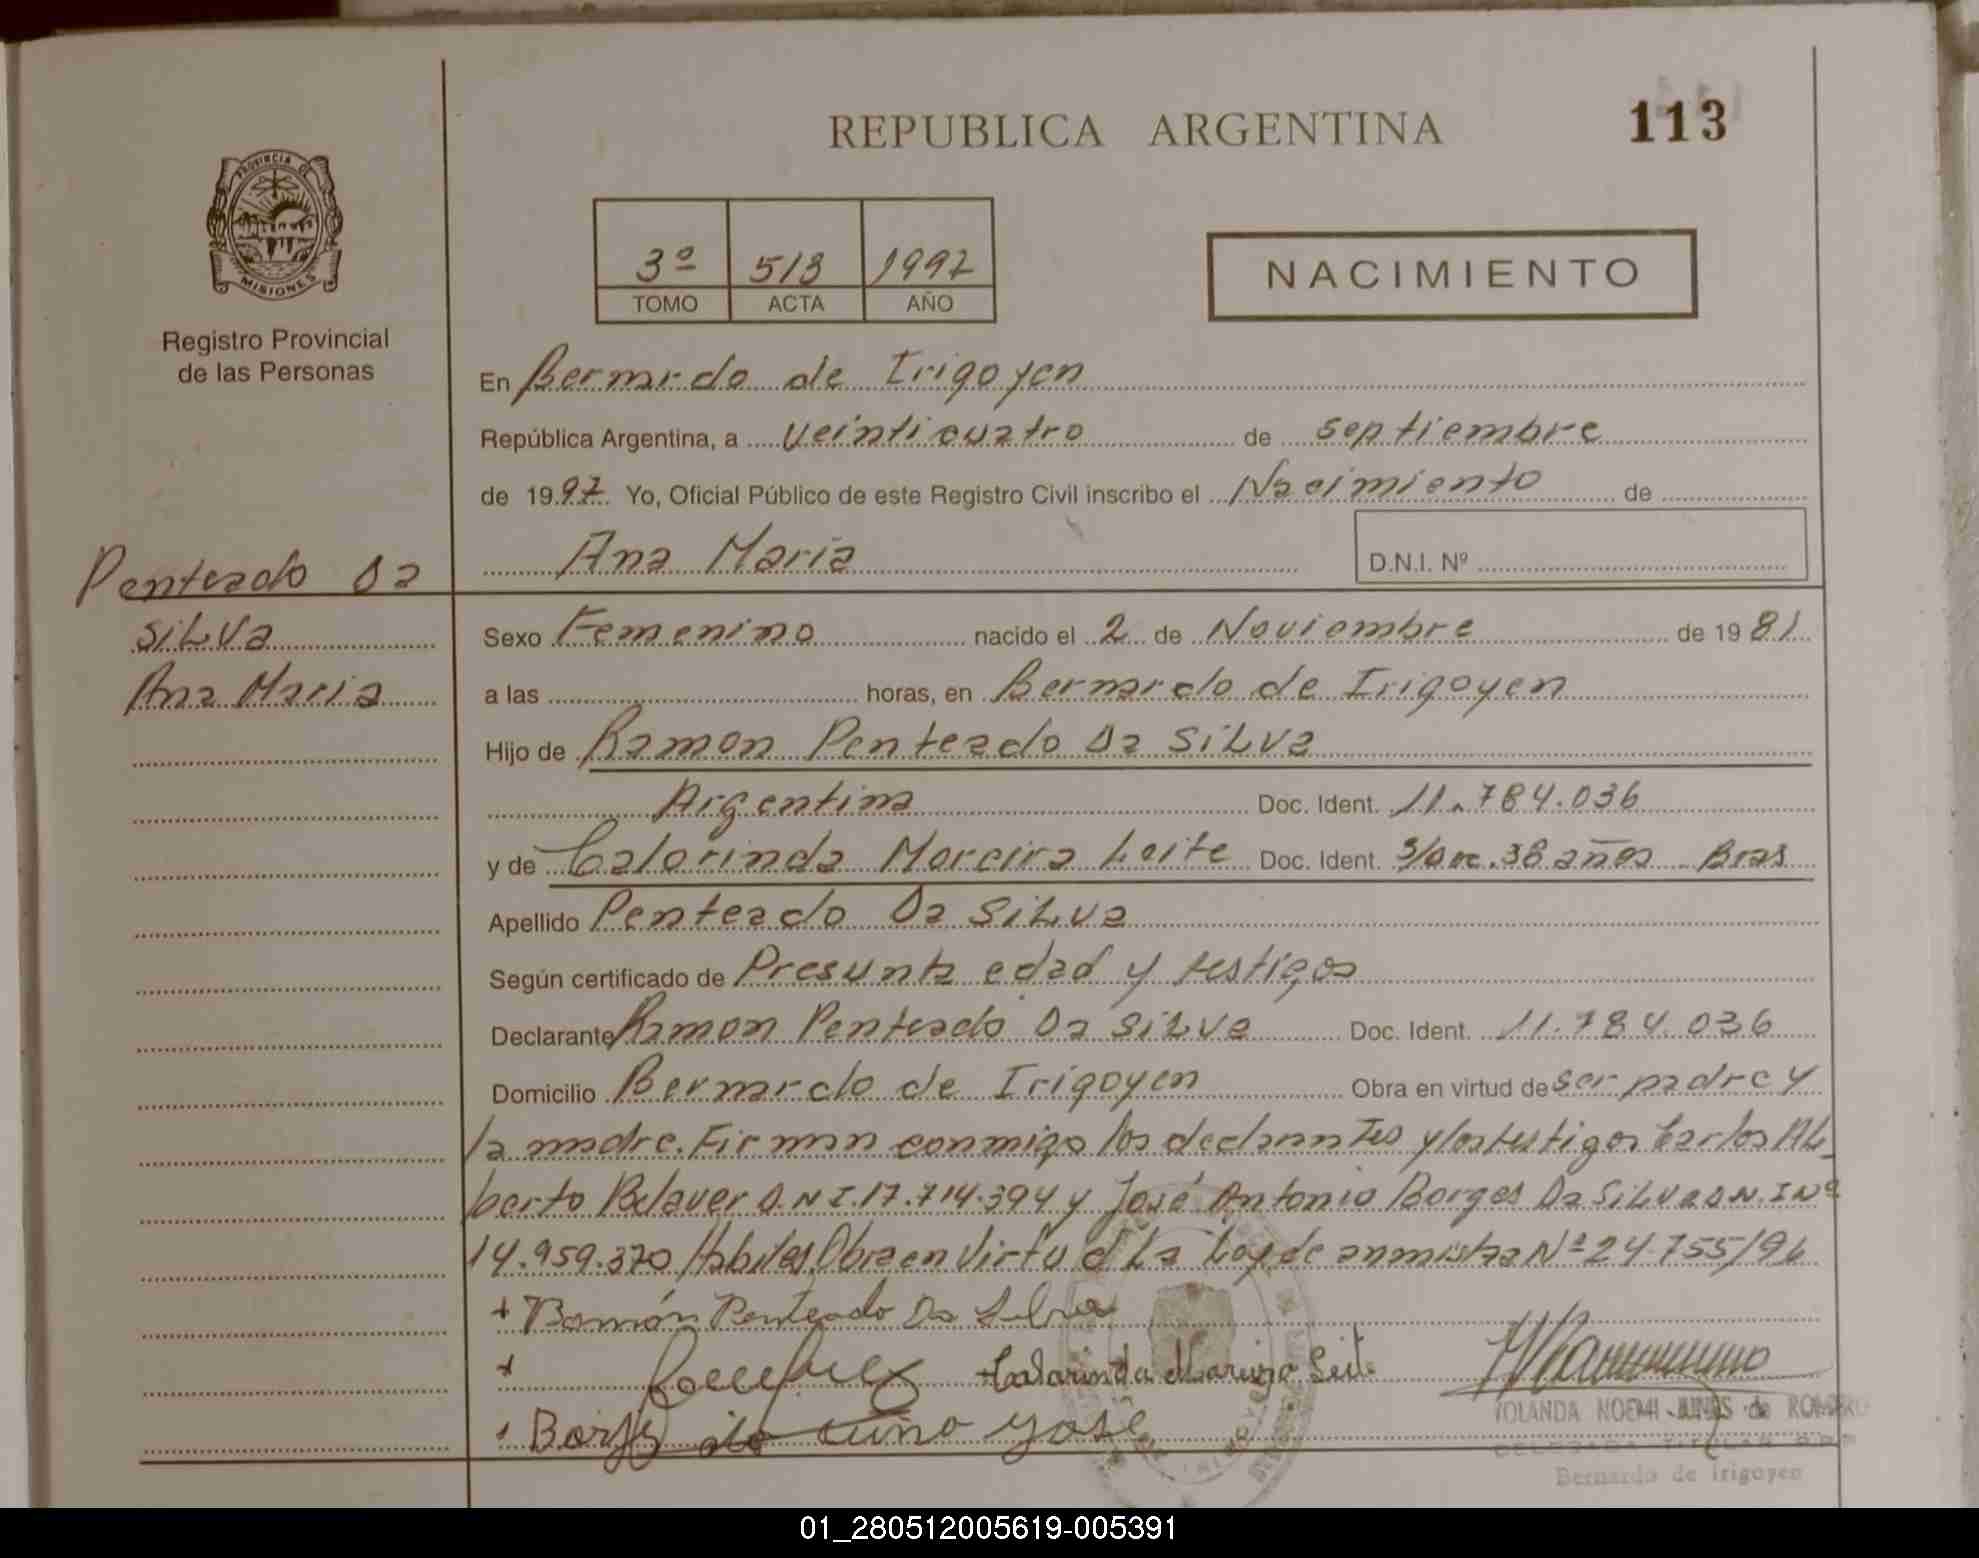 REPUBLICA ARGENTINA
113
PROVINCIA DE
MISIONES
Registro Provincial
de las Personas
3º 513 1997
TOMO ACTA AÑO
NACIMIENTO
En Bernardo de Irigoyen
República Argentina, a veinticuatro de septiembre
de 1997. Yo, Oficial Público de este Registro Civil inscribo el Nacimiento de
Ana Maria
D.N.I. Nº
Penteado Da
SiLVa
Ana Maria
Sexo Femenino nacido el 2 de Noviembre de 1981
a las horas, en Bernardo de Irigoyen
Hijo de Ramon Penteado Da SiLVa
Argentina Doc. Ident. 11.784.036
y de Calorinda Moreira Leite Doc. Ident. S/Doc. 38 años Bras
Apellido Penteado Da SiLVa
Según certificado de Presunta edad y testigos
Declarante Ramon Penteado Da SiLVa Doc. Ident. 11.784.036
Domicilio Bernardo de Irigoyen Obra en virtud de ser padre y
la madre. Firman conmigo los declarantes y los testigos Carlos AL
berto Belaver D.N.I. 17.714.394 y José Antonio Borges Da SiLVa D.N.I Nº
14.959.370 Habiles. Obra en Virtud La Ley de amnistia Nº 24.755/96
+ Ramón Penteado Da Silva
+ Calarinda Leite
Borges José
YOLANDA NOEMI de ROMERO
DELEGADA TITULAR
Bernardo de Irigoyen
01_280512005619-005391